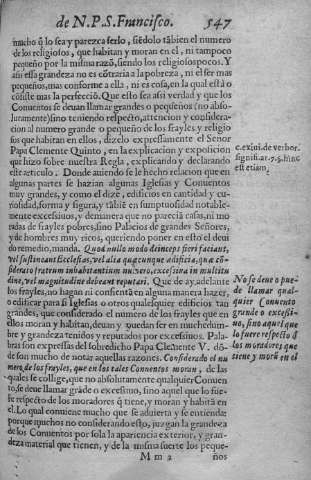 de N.P.S. Francisco. 547
mucho q̃ lo sea y parezca serlo, siẽdo tãbien el numero
de los religiosos, que habitan y moran en el, ni tampoco
pequeño por la misma razõ, siendo los religiosos pocos. Y
assi essa grandeza no es cõtraria a la pobreza, ni el ser mas
pequeños, mas conforme a ella, ni es cosa, en la qual està o
cõsiste mas la perfecciõ. Que esto sea assi verdad y que los
Conuentos se deuan llamar grandes o pequeños (no abso-
lutamente) sino teniendo respecto, attencion y considera-
cion al numero grande o pequeño de los frayles, y religio
sos que habitan en ellos, dizelo expressamente el Señor
Papa Clemente Quinto, en la explicacion y exposicion
que hizo sobre nuestra Regla, explicando y declarando
este articulo. Donde auiendo se le hecho relacion que en
algunas partes se hazian algunas Iglesias y Conuentos
muy grandes, y como el dize, edificios en cantidad y cu-
riosidad, forma y figura, y tãbiẽ en sumptuosidad notable-
mente excessiuos, y de manera que no parecià casas, ni mo
radas de frayles pobres, sino Palacios de grandes Señores,
y de hombres muy ricos, queriendo poner en esto el deui
do remedio, manda. Quod nullo modo deinceps fieri faciant,
vel sustineant Ecclesias, vel alia quæcunque ædificia, quæ cõ-
siderato fratrum inhabitantium numero, excessiua in multitu
dine, vel magnitudine debeant reputari. Que de ay adelante
los frayles, no hagan ni consientã en alguna manera hazer,
o edificar para si Iglesias o otros qualesquier edificios tan
grandes, que considerado el numero de los frayles que en
ellos moran y habitan, deuan y puedan ser en muchedum-
bre y grandeza tenidos y reputados por excessiuos. Pala-
bras son expressas del sobredicho Papa Clemente V. dõ-
de son mucho de notar aquellas razones. Considerado el nu
mero de los frayles, que en los tales Conuentos moran, de las
quales se collige, que no absolutamente qualquier Conuen
to, se deue llamar grãde o excessiuo, sino aquel que lo fue-
re respecto de los moradores q̃ tiene, y moran y habitã en
el. Lo qual conuiene mucho que se aduierta y se entienda:
porque muchos no considerando esto, juzgan la grandeza
de los Conuentos por sola la apariencia exterior, y gran-
deza material que tienen, y de la misma suerte los peque-
M m 2 ños
c. exiui. de verbor.
signifi.
est etiam.
No se deue o pue-
de llamar qual-
quier Conuento
grande o excessi-
uo, sino aquel que
lo fuere respecto d̃
los moradores que
tiene y morã en el